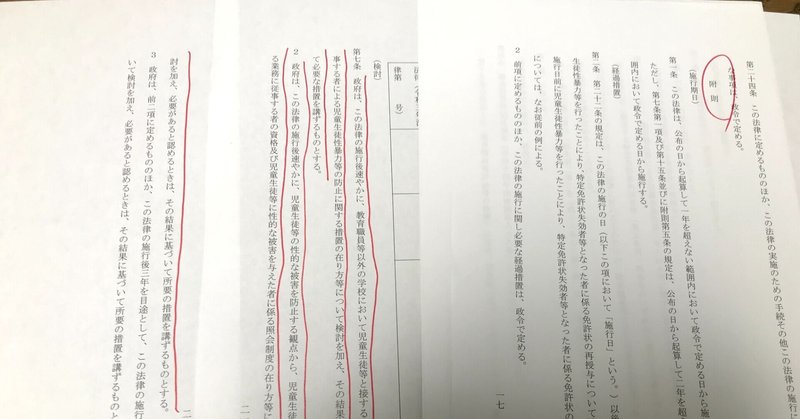 第二十四条　この法律に定めるもののほか、この法律の実施のための手続その他この法律
な事項は、政令で定める。
附　則
（施行期日）
第一条　この法律は、公布の日から起算して一年を超えない範囲内において政令で定める日から施
ただし、第七条第一項及び第十五条並びに附則第五条の規定は、公布の日から起算して二年を超
囲内において政令で定める日から施行する。
（経過措置）
第二条　第二十二条の規定は、この法律の施行の日（以下この項において「施行日」という。）以
生徒性暴力等を行ったことにより、特定免許状失効者等となった者に係る免許状の再授与について
施行日前に児童生徒性暴力等を行ったことにより、特定免許状失効者等となった者に係る免許状の
については、なお従前の例による。
２　前項に定めるもののほか、この法律の施行に関し必要な経過措置は、政令で定める。
一七
律第　　号）
（検討）
第七条　政府は、この法律の施行後速やかに、教育職員等以外の学校において児童生徒等と接する
事する者による児童生徒性暴力等の防止に関する措置の在り方等について検討を加え、その結果
て必要な措置を講ずるものとする。
２　政府は、この法律の施行後速やかに、児童生徒等の性的な被害を防止する観点から、児童生徒
る業務に従事する者の資格及び児童生徒等に性的な被害を与えた者に係る照会制度の在り方等に
二
討を加え、必要があると認めるときは、その結果に基づいて所要の措置を講ずるものとする。
３　政府は、前二項に定めるもののほか、この法律の施行後三年を目途として、この法律の施行
いて検討を加え、必要があると認めるときは、その結果に基づいて所要の措置を講ずるものと
二